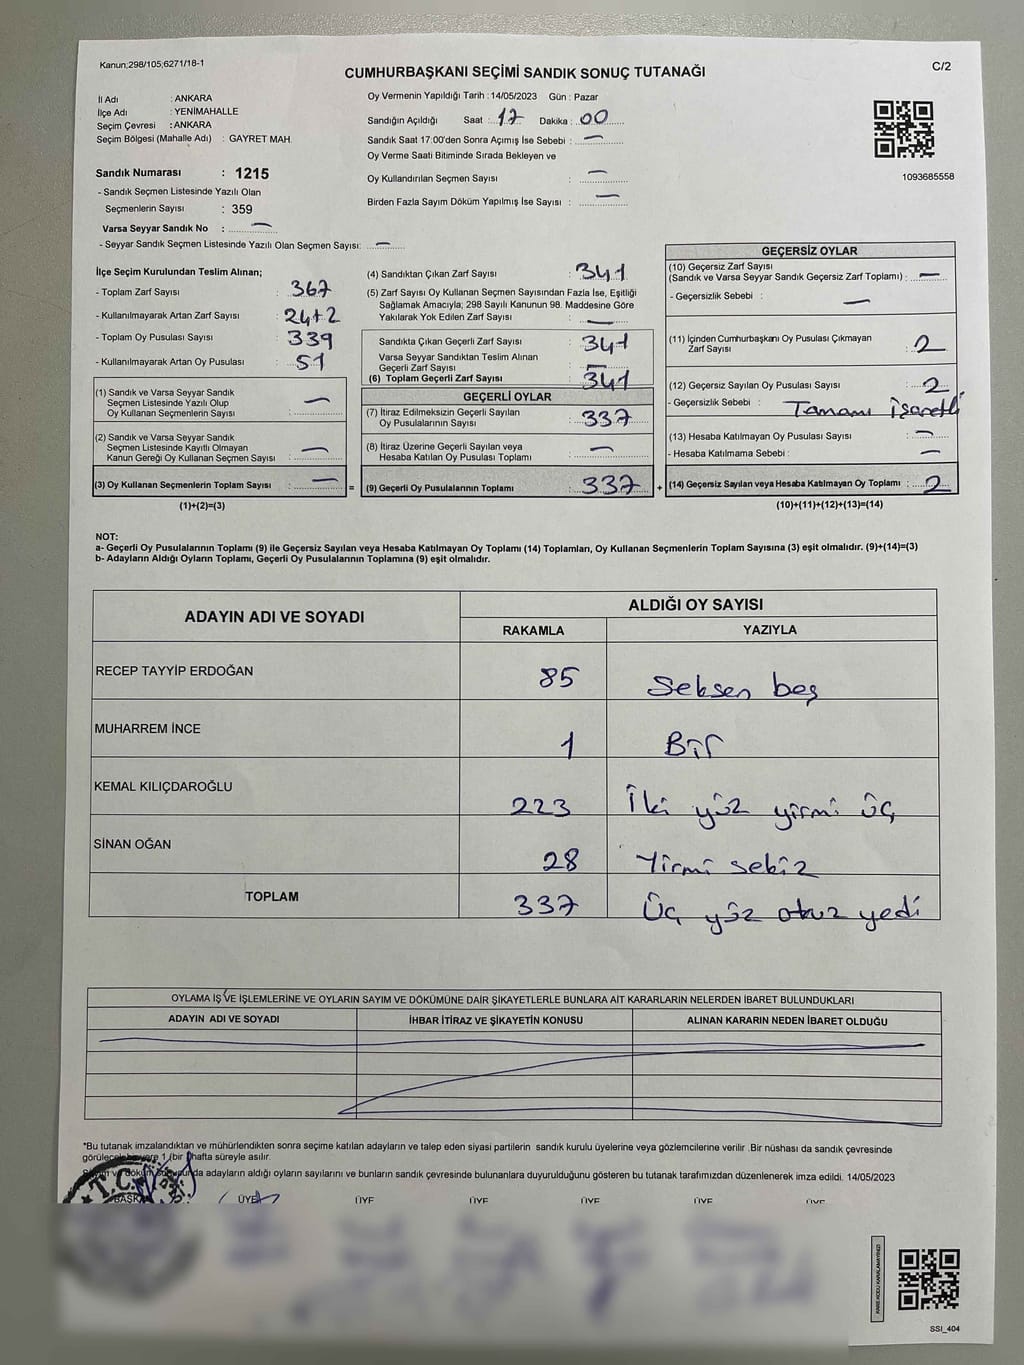 Kanun;298/105;6271/18-1
C/2
CUMHURBAŞKANI SEÇİMİ SANDIK SONUÇ TUTANAĞI
İl Adı : ANKARA
İlçe Adı : YENİMAHALLE
Seçim Çevresi : ANKARA
Seçim Bölgesi (Mahalle Adı) : GAYRET MAH.
Oy Vermenin Yapıldığı Tarih : 14/05/2023 Gün : Pazar
Sandığın Açıldığı Saat : 17 Dakika : 00
Sandık Saat 17:00'den Sonra Açımış İse Sebebi : —
Oy Verme Saati Bitiminde Sırada Bekleyen ve
Oy Kullandırılan Seçmen Sayısı : —
Birden Fazla Sayım Döküm Yapılmış İse Sayısı : —
1093685558
Sandık Numarası : 1215
- Sandık Seçmen Listesinde Yazılı Olan
Seçmenlerin Sayısı : 359
Varsa Seyyar Sandık No : —
- Seyyar Sandık Seçmen Listesinde Yazılı Olan Seçmen Sayısı: —
İlçe Seçim Kurulundan Teslim Alınan;
- Toplam Zarf Sayısı : 367
- Kullanılmayarak Artan Zarf Sayısı : 24+2
- Toplam Oy Pusulası Sayısı : 339
- Kullanılmayarak Artan Oy Pusulası : 51
(1) Sandık ve Varsa Seyyar Sandık
Seçmen Listesinde Yazılı Olup
Oy Kullanan Seçmenlerin Sayısı : —
(2) Sandık ve Varsa Seyyar Sandık
Seçmen Listesinde Kayıtlı Olmayan
Kanun Gereği Oy Kullanan Seçmen Sayısı : —
(3) Oy Kullanan Seçmenlerin Toplam Sayısı : — =
(1)+(2)=(3)
(4) Sandıktan Çıkan Zarf Sayısı : 341
(5) Zarf Sayısı Oy Kullanan Seçmen Sayısından Fazla İse, Eşitliği
Sağlamak Amacıyla; 298 Sayılı Kanunun 98. Maddesine Göre
Yakılarak Yok Edilen Zarf Sayısı : —
Sandıkta Çıkan Geçerli Zarf Sayısı : 341
Varsa Seyyar Sandıktan Teslim Alınan
Geçerli Zarf Sayısı : —
(6) Toplam Geçerli Zarf Sayısı : 341
GEÇERLİ OYLAR
(7) İtiraz Edilmeksizin Geçerli Sayılan
Oy Pusulalarının Sayısı : 337
(8) İtiraz Üzerine Geçerli Sayılan veya
Hesaba Katılan Oy Pusulası Toplamı : —
(9) Geçerli Oy Pusulalarının Toplamı : 337 +
GEÇERSİZ OYLAR
(10) Geçersiz Zarf Sayısı
(Sandık ve Varsa Seyyar Sandık Geçersiz Zarf Toplamı) : —
- Geçersizlik Sebebi : —
(11) İçinden Cumhurbaşkanı Oy Pusulası Çıkmayan
Zarf Sayısı : 2
(12) Geçersiz Sayılan Oy Pusulası Sayısı : 2
- Geçersizlik Sebebi : Tamamı işaretli
(13) Hesaba Katılmayan Oy Pusulası Sayısı : —
- Hesaba Katılmama Sebebi : —
(14) Geçersiz Sayılan veya Hesaba Katılmayan Oy Toplamı : 2
(10)+(11)+(12)+(13)=(14)
NOT:
a- Geçerli Oy Pusulalarının Toplamı (9) ile Geçersiz Sayılan veya Hesaba Katılmayan Oy Toplamı (14) Toplamları, Oy Kullanan Seçmenlerin Toplam Sayısına (3) eşit olmalıdır. (9)+(14)=(3)
b- Adayların Aldığı Oyların Toplamı, Geçerli Oy Pusulalarının Toplamına (9) eşit olmalıdır.
ADAYIN ADI VE SOYADI ALDIĞI OY SAYISI
RAKAMLA YAZIYLA
RECEP TAYYİP ERDOĞAN 85 Seksen beş
MUHARREM İNCE 1 Bir
KEMAL KILIÇDAROĞLU 223 İki yüz yirmi üç
SİNAN OĞAN 28 Yirmi sekiz
TOPLAM 337 Üç yüz otuz yedi
OYLAMA İŞ VE İŞLEMLERİNE VE OYLARIN SAYIM VE DÖKÜMÜNE DAİR ŞİKAYETLERLE BUNLARA AİT KARARLARIN NELERDEN İBARET BULUNDUKLARI
ADAYIN ADI VE SOYADI İHBAR İTİRAZ VE ŞİKAYETİN KONUSU ALINAN KARARIN NEDEN İBARET OLDUĞU
*Bu tutanak imzalandıktan ve mühürlendikten sonra seçime katılan adayların ve talep eden siyasi partilerin sandık kurulu üyelerine veya gözlemcilerine verilir. Bir nüshası da sandık çevresinde
görülecek yere 1 (bir) hafta süreyle asılır.
Sayım ve döküm sonucunda adayların aldığı oyların sayılarını ve bunların sandık çevresinde bulunanlara duyurulduğunu gösteren bu tutanak tarafımızdan düzenlenerek imza edildi. 14/05/2023
T.C.
BAŞKAN ÜYE ÜYE ÜYE ÜYE ÜYE ÜYE
SSI_404